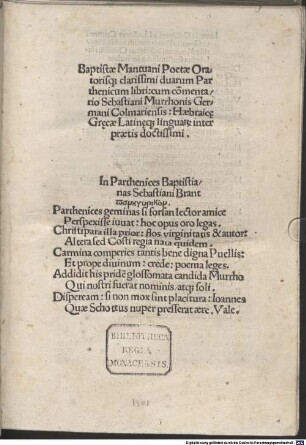 Baptistæ Mantuani Poetæ Ora-
torisq; clarissimi duarum Par
thenicum libri: cum cõmenta,
rio Sebastiani Murrhonis Ger,
mani Colmariensis: Hæbraicę
Gręcæ Latineq; linguarę inter
prætis doctissimi.
In Parthenices Baptistia-
nas Sebastiani Brant
Parthenices geminas si forsan lector amice
Perspexisse iuuat: hoc opus oro legas.
Christipara illa prior: flos virginitatis & autor:
Altera sed Costi regia nata quidem.
Carmina comperies tantis bene digna Puellis:
Et prope diuinum: crede: poema leges.
Addidit his pridē glossomata candida Murrho
Qui nostri fuerat nominis atq; soli.
Dispeream: si non mox sint placitura: Ioannes
Quæ Schottus nuper presserat ære. Vale.
BIBLIOTHECA
REGIA
MONACENSIS.
1501